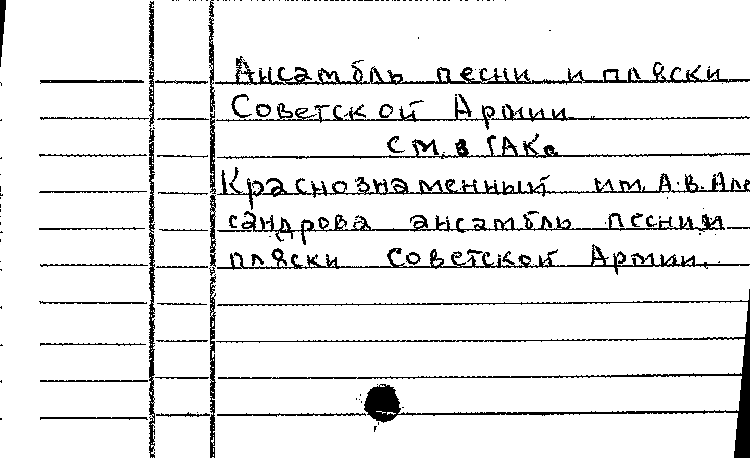 Ансамбль песни и пляски
Советской Армии
см. в ГАКе
Краснознаменный им. А.В. Але
сандрова ансамбль песни и
пляски Советской Армии.